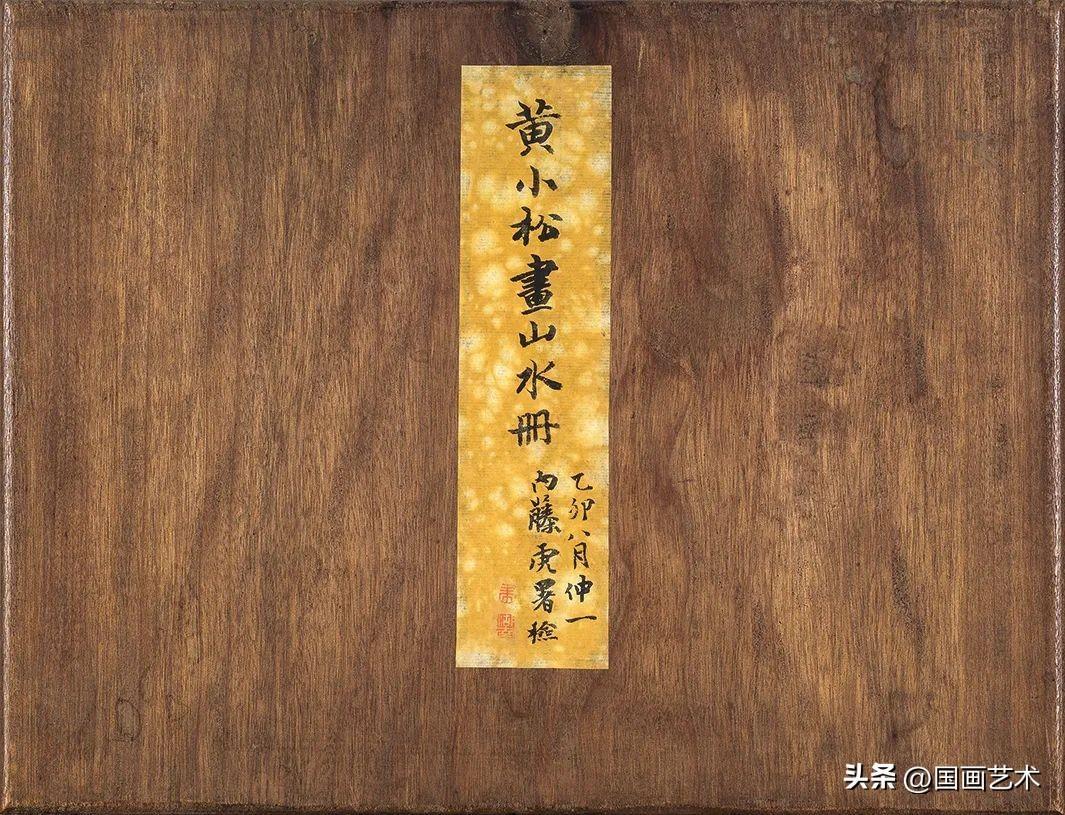 黄小松畫山水冊
乙卯八月仲一
內藤虎署檢
头条 @国画艺术